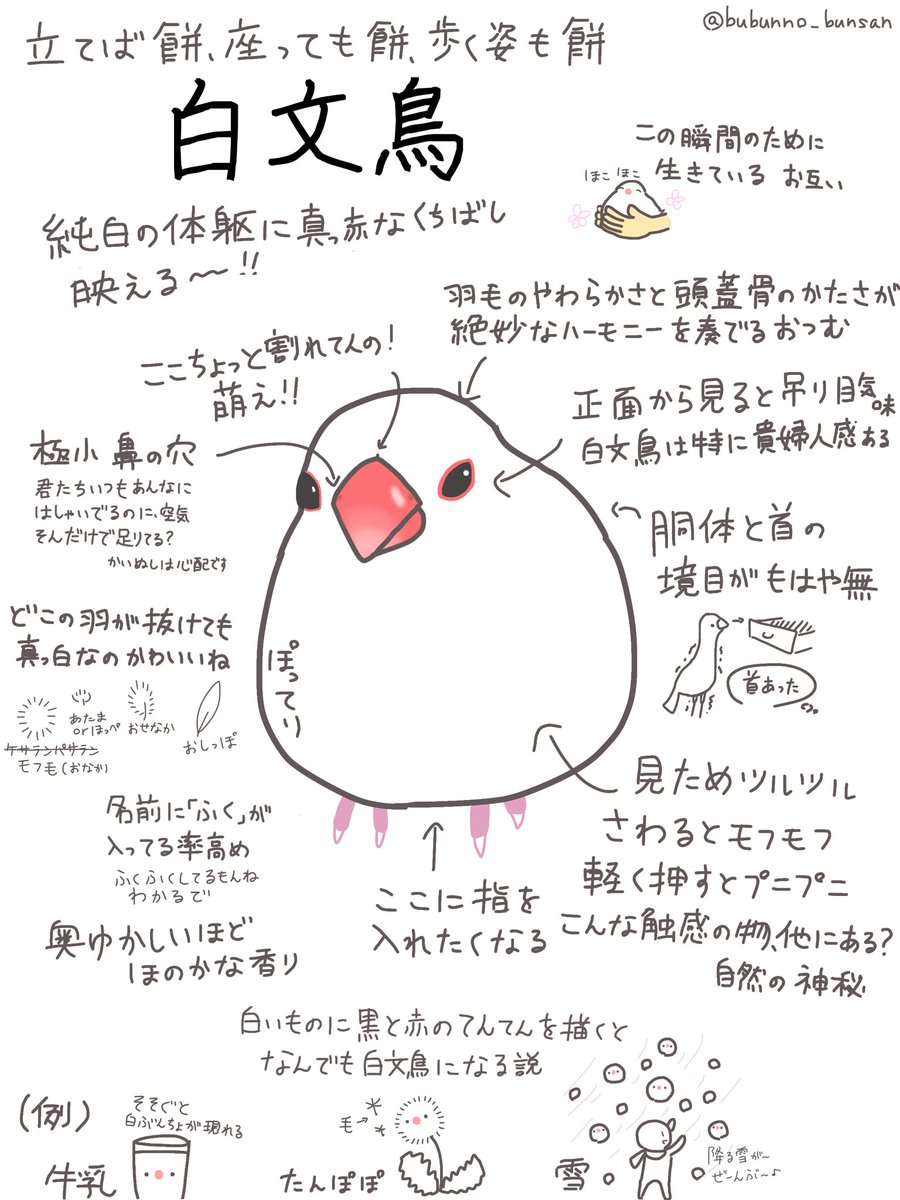 @bubunno_bunsan
立てば餅、座っても餅、歩く姿も餅
白文鳥
この瞬間のために
生きている お互い
ほこ ほこ
純白の体躯に真っ赤なくちばし
映える〜!!
羽毛のやわらかさと頭蓋骨のかたさが
絶妙なハーモニーを奏でるおつむ
ここちょっと割れてんの!
萌え!!
正面から見ると吊り目気味
白文鳥は特に貴婦人感ある
極小鼻の穴
君たちいつもあんなに
はしゃいでるのに、空気
そんだけで足りてる?
かいぬしは心配です
胴体と首の
境目がもはや無
首あった
どこの羽が抜けても
真っ白なのかわいいね
あたま
orほっぺ
おせなか
おしっぽ
ケサランパサラン
モフ毛(おなか)
ぽってり
見ためツルツル
さわるとモフモフ
軽く押すとプニプニ
こんな触感の物、他にある?
自然の神秘
名前に「ふく」が
入ってる率高め
ふくふくしてるもんね
わかるで
ここに指を
入れたくなる
奥ゆかしいほど
ほのかな香り
白いものに黒と赤のてんてんを描くと
なんでも白文鳥になる説
(例)
そそぐと
白ぶんちょが現れる
牛乳
毛→
たんぽぽ
雪
降る雪が〜
ぜーんぶ〜♪